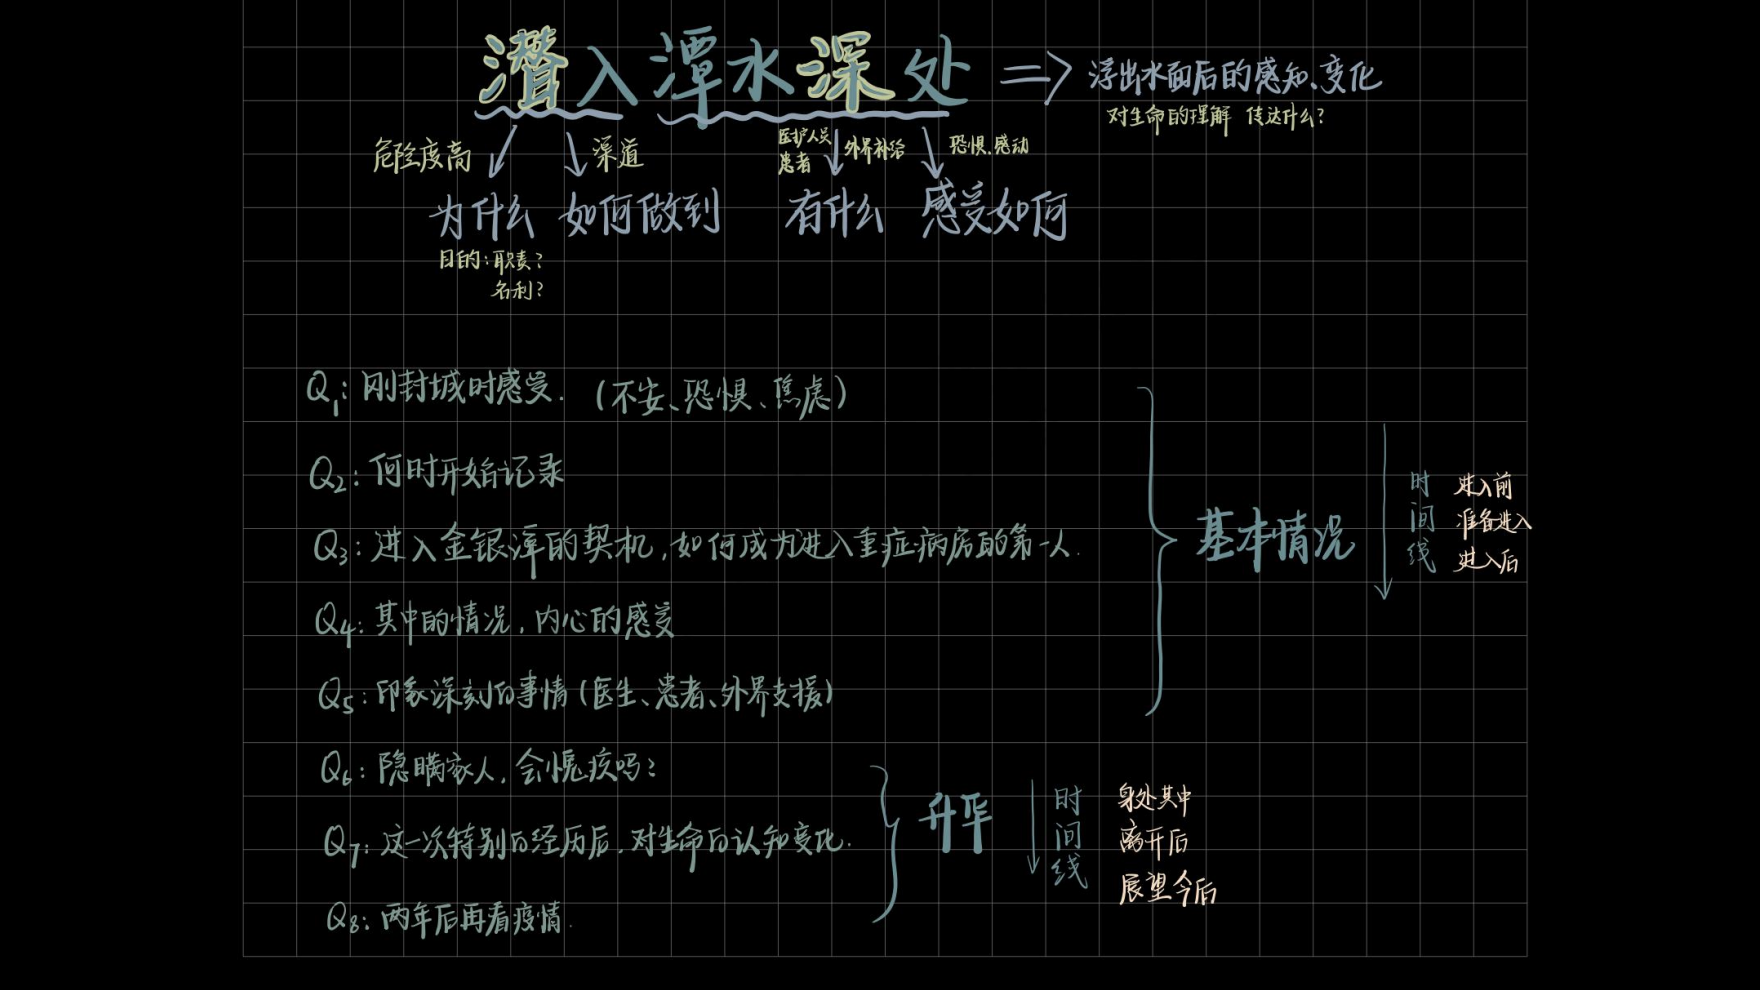 潜入潭水深处 => 浮出水面后的感知、变化
对生命的理解 传达什么?
危险度高 渠道 医护人员 患者 外界补给 恐惧、感动
为什么 如何做到 有什么 感受如何
目的:职责?
名利?
Q1:刚封城时感受.(不安、恐惧、焦虑)
Q2:何时开始记录
Q3:进入金银潭的契机,如何成为进入重症病房的第一人.
Q4:其中的情况,内心的感受
Q5:印象深刻的事情(医生、患者、外界支援)
基本情况
时间线
进入前
准备进入
进入后
Q6:隐瞒家人,会愧疚吗?
Q7:这一次特别的经历后,对生命的认知变化.
Q8:两年后再看疫情.
升华
时间线
身处其中
离开后
展望今后